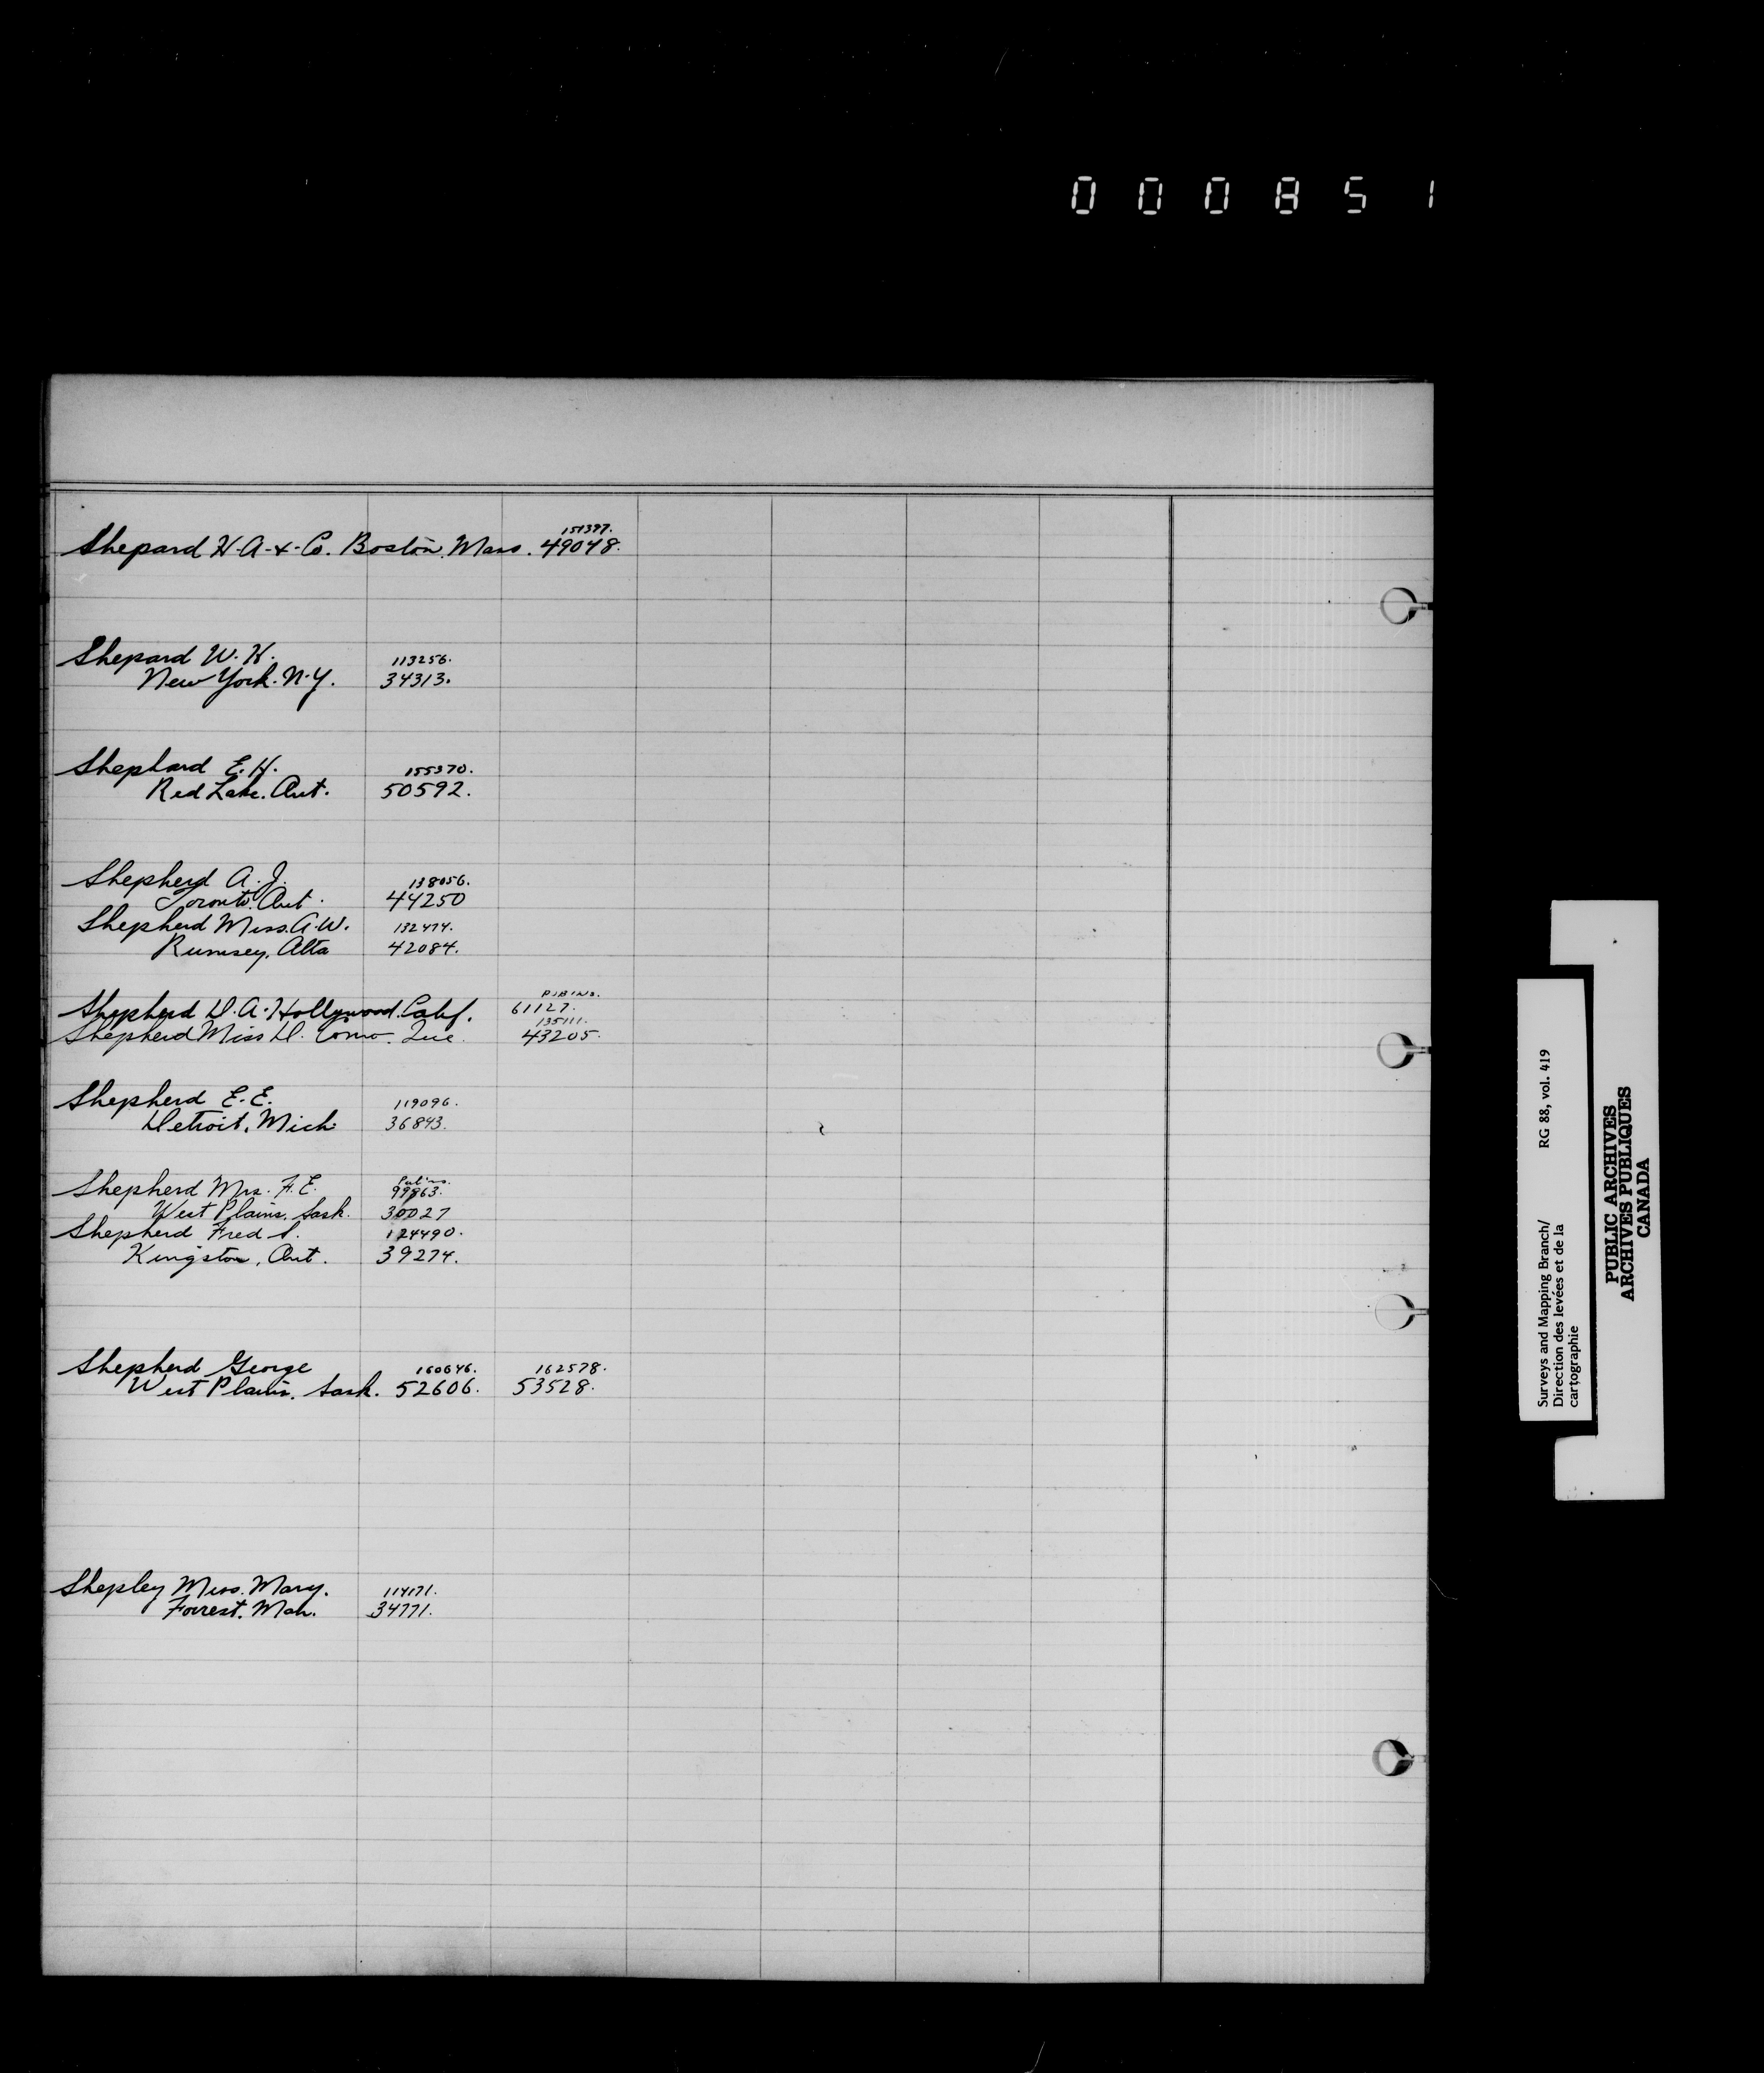 000851
151397.
Shepard H.A. & Co. Boston, Mass. 49048.
Shepard W. H. 113256.
New York. N.Y. 34313.
Shephard E. H. 155370.
Red Lake. Ont. 50592.
Shepherd A. J. 138056.
Toronto. Ont. 44250
Shepherd Miss. A. W. 132474.
Rumsey, Alta 42084.
Shepherd D. A. Hollywood. Calif. 61127.
135111.
Shepherd Miss D. Como. Que. 43205.
Shepherd E. E. 119096.
Detroit, Mich. 36843.
Shepherd Mrs. F. E. 99863.
West Plains, Sask. 30027
Shepherd Fred S. 124490.
Kingston, Ont. 39274.
Shepherd George 160646. 162578.
West Plains. Sask. 52606. 53528.
Shepley Miss. Mary. 114171.
Forrest. Man. 34771.
Surveys and Mapping Branch/ RG 88, vol. 419
Direction des levées et de la
cartographie
PUBLIC ARCHIVES
ARCHIVES PUBLIQUES
CANADA